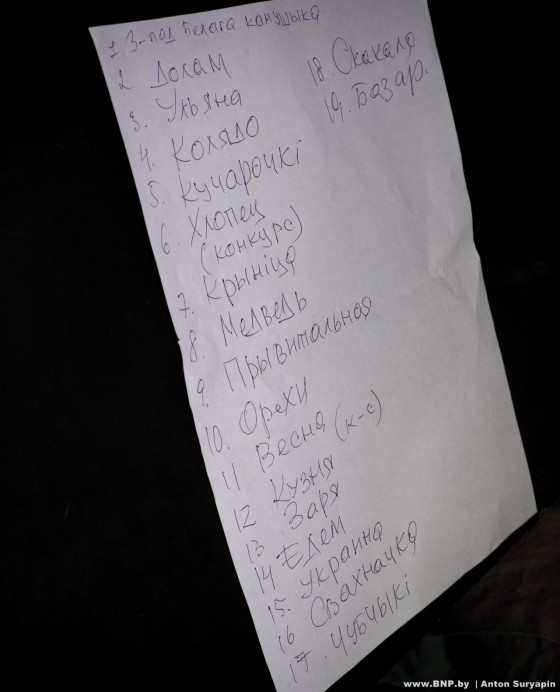 1 З-пад Белага камушыка
2. Долам
3. Ульяна
4. Колядо
5. Кучарочкі
6. Хлопец
(конкурс)
7. Крыніца
8. Медведь
9. Прывитальная
10. Орехи
11 Весна (к-с)
12 Кузня
13 Заря
14 Едем
15. Украина
16 Свахначка
17. Чубчыкі
18. Скакала
19. Базар.
www.BNP.by | Anton Suryapin